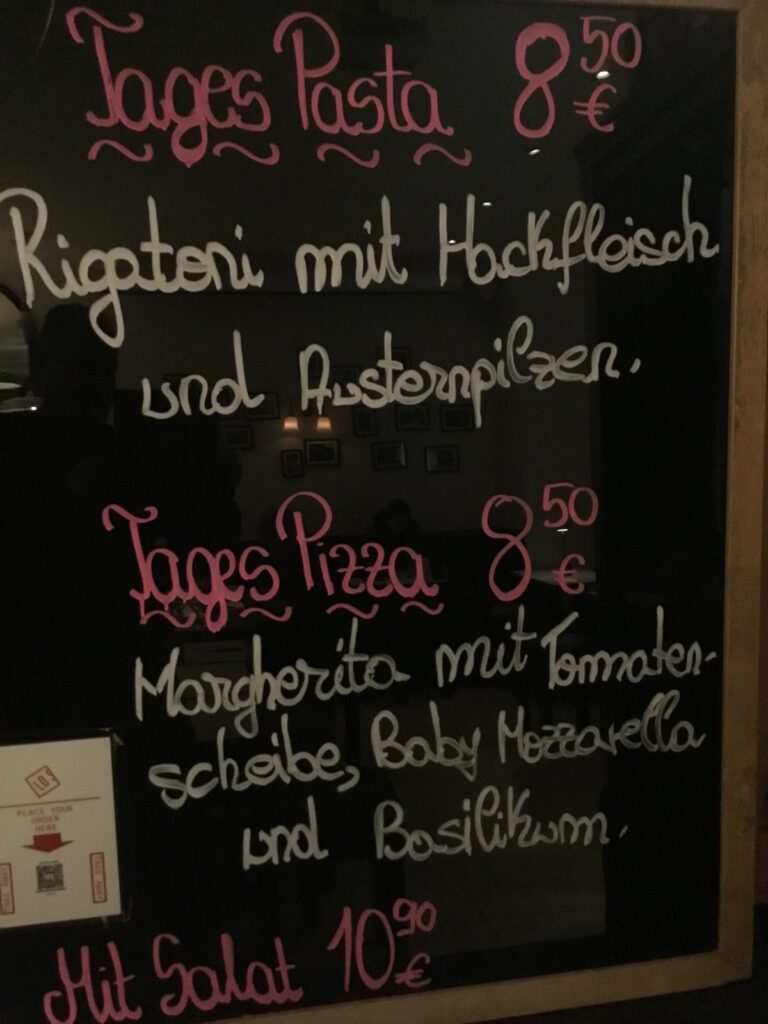 Tages Pasta 8 50 €
Rigatoni mit Hackfleisch
und Austernpilzen.
Tages Pizza 8 50 €
Margherita mit Tommaten-
scheibe, Baby Mozzarella
und Basilikum.
Mit Salat 10 90 €
LO9
PLACE YOUR
ORDER
HERE